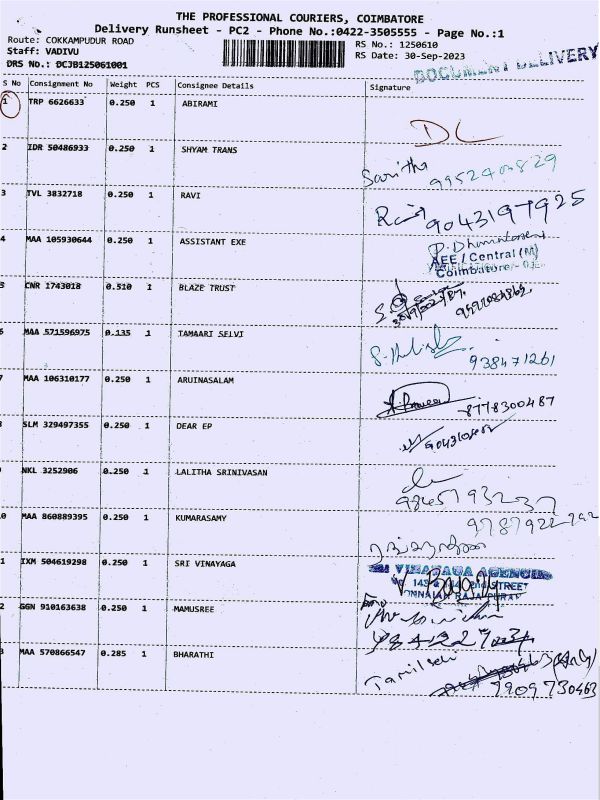 THE PROFESSIONAL COURIERS, COIMBATORE
Delivery Runsheet - PC2 - Phone No.:0422-3505555 - Page No.:1
Route: COKKAMPUDUR ROAD
Staff: VADIVU
DRS No.: DCJB125061001
RS No.: 1250610
RS Date: 30-Sep-2023
DOCUMENT DELIVERY
S No Consignment No Weight PCS Consignee Details Signature
1 TRP 6626633 0.250 1 ABIRAMI DL
2 IDR 50486933 0.250 1 SHYAM TRANS Saritha
3 TVL 3832718 0.250 1 RAVI 9043197925
4 MAA 105930644 0.250 1 ASSISTANT EXE
AEE / Central (M)
Coimbatore
5 CNR 1743018 0.510 1 BLAZE TRUST
6 MAA 571596975 0.135 1 TAMAARI SELVI
938471261
7 MAA 106310177 0.250 1 ARUINASALAM 8778300487
8 SLM 329497355 0.250 1 DEAR EP
9 NKL 3252906 0.250 1 LALITHA SRINIVASAN
9845793237
0 MAA 860889395 0.250 1 KUMARASAMY
1 IXM 504619298 0.250 1 SRI VINAYAGA
SRI VINAYAGA AGENCIES
STREET
2 GGN 910163638 0.250 1 MAMUSREE
3 MAA 570866547 0.285 1 BHARATHI Tamilselvi
7909730463